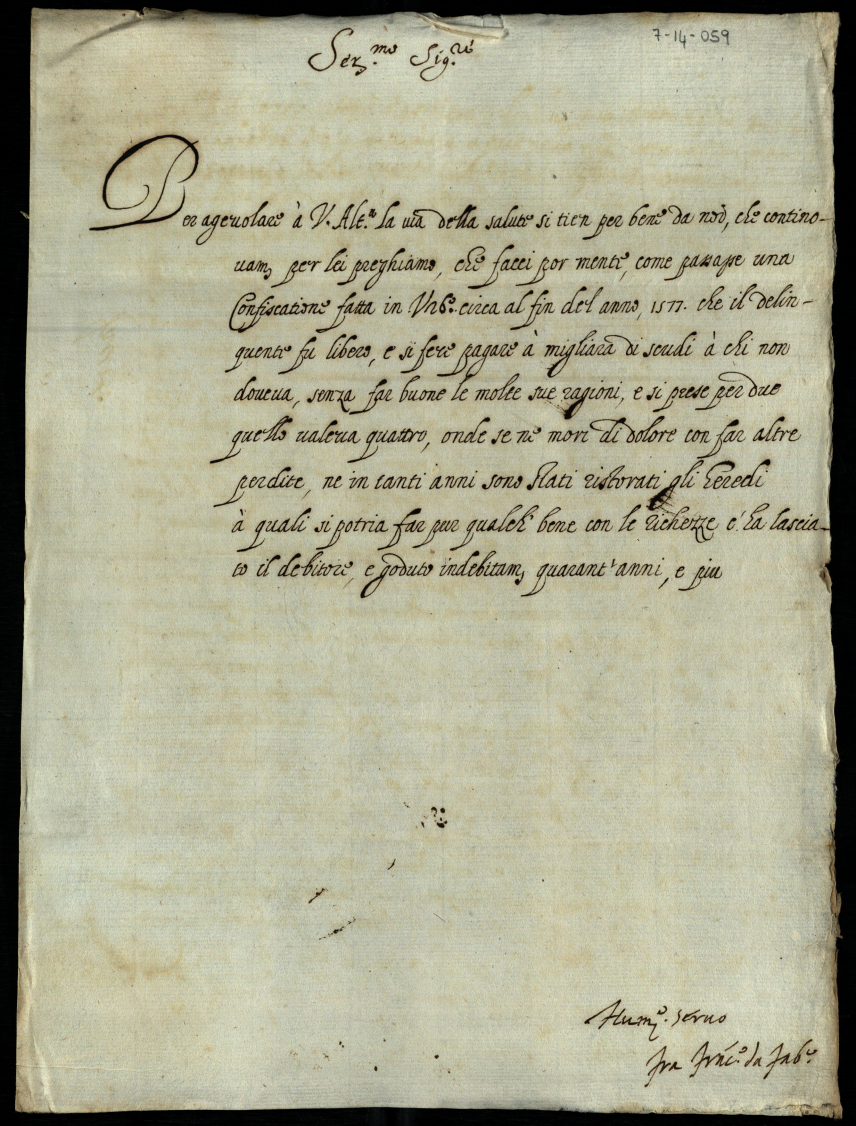 7-14-059
Ser.mo Sig.re
Per agevolare à V. Alt.a la via della salute si tien per bene da noi, che contino-
vam.e per lei preghiamo, che facci por mente, come passasse una
Confiscatione fatta in Urb.o circa al fin del anno, 1577. che il delin-
quente fu libero, e si fere pagare à migliara di scudi à chi non
doveva, senza far buone le molte sue ragioni, e si prese per due
quello valeva quattro, onde se ne morì di dolore con far altre
perdite, ne in tanti anni sono stati ristorati gli heredi
à quali si potria far pur qualch' bene con le richezze c' ha lascia-
to il debitore, e goduto indebitam.e quarant' anni, e piu
Hum.e servo
fra Franc.o da Fab.o